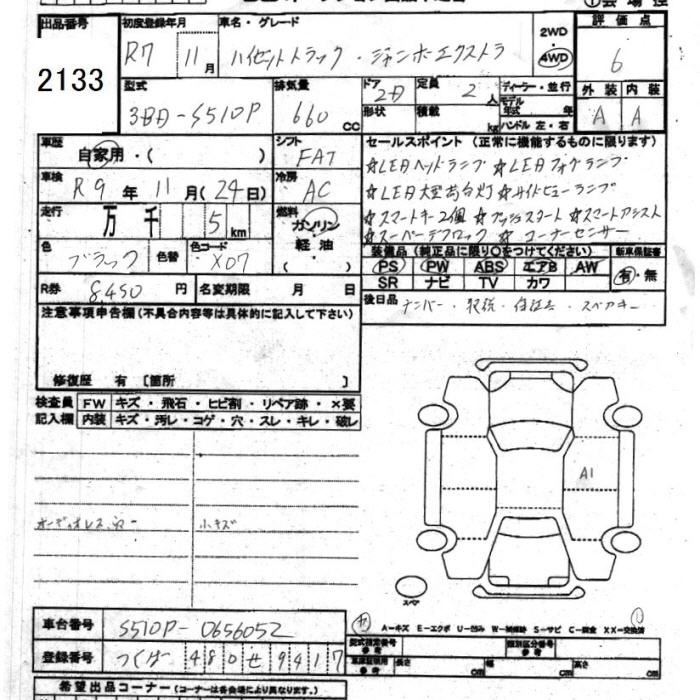 出品番号 初度登録年月 車名・グレード 2WD 評価点
R7 11月 ハイゼットトラック・ジャンボエクストラ 4WD 6
2133
型式 排気量 ドア 定員 ディーラー・並行 外装 内装
3BD-S510P 660cc 2D 2人 モデル年式 年 A A
形状 積載 kg ハンドル 左・右
車歴 シフト セールスポイント (正常に機能するものに限ります)
自家用・( ) FAT ☆LEDヘッドランプ ☆LEDフォグランプ
車検 冷房
R9年11月(24日) AC ☆LED大型荷台灯 ☆サイドビューランプ
走行 万 千 5km 燃料 ガソリン ☆スマートキー2個 ☆プッシュスタート ☆スマートアシスト
軽油・( ) ☆スーパーデフロック ☆コーナーセンサー
色 ブラック 色替 色コード X07
装備品 (純正品に限り○をつけてください) 新車保証書
PS PW ABS エアB AW 有・無
SR ナビ TV カワ
R券 8450円 名変期限 月 日
後日品 ナンバー・取説・保証書・スペアキー
注意事項申告欄(不具合内容等は具体的に記入して下さい)
修復歴 有 [箇所 ]
検査員 FW キズ・飛石・ヒビ割・リペア跡・×要
記入欄 内装 キズ・汚レ・コゲ・穴・スレ・キレ・破レ
A1
オーディオレスカバー 小キズ
スペア
車台番号 S510P-0656052
A-キズ E-エクボ U-凹ミ W-補修跡 S-サビ C-腐食 XX-交換済
登録番号 つくば 480 せ 9417
型式指定番号 類別区分番号
長さ cm 幅 cm 高さ cm
希望出品コーナー (コーナーは各会場により異なります。)